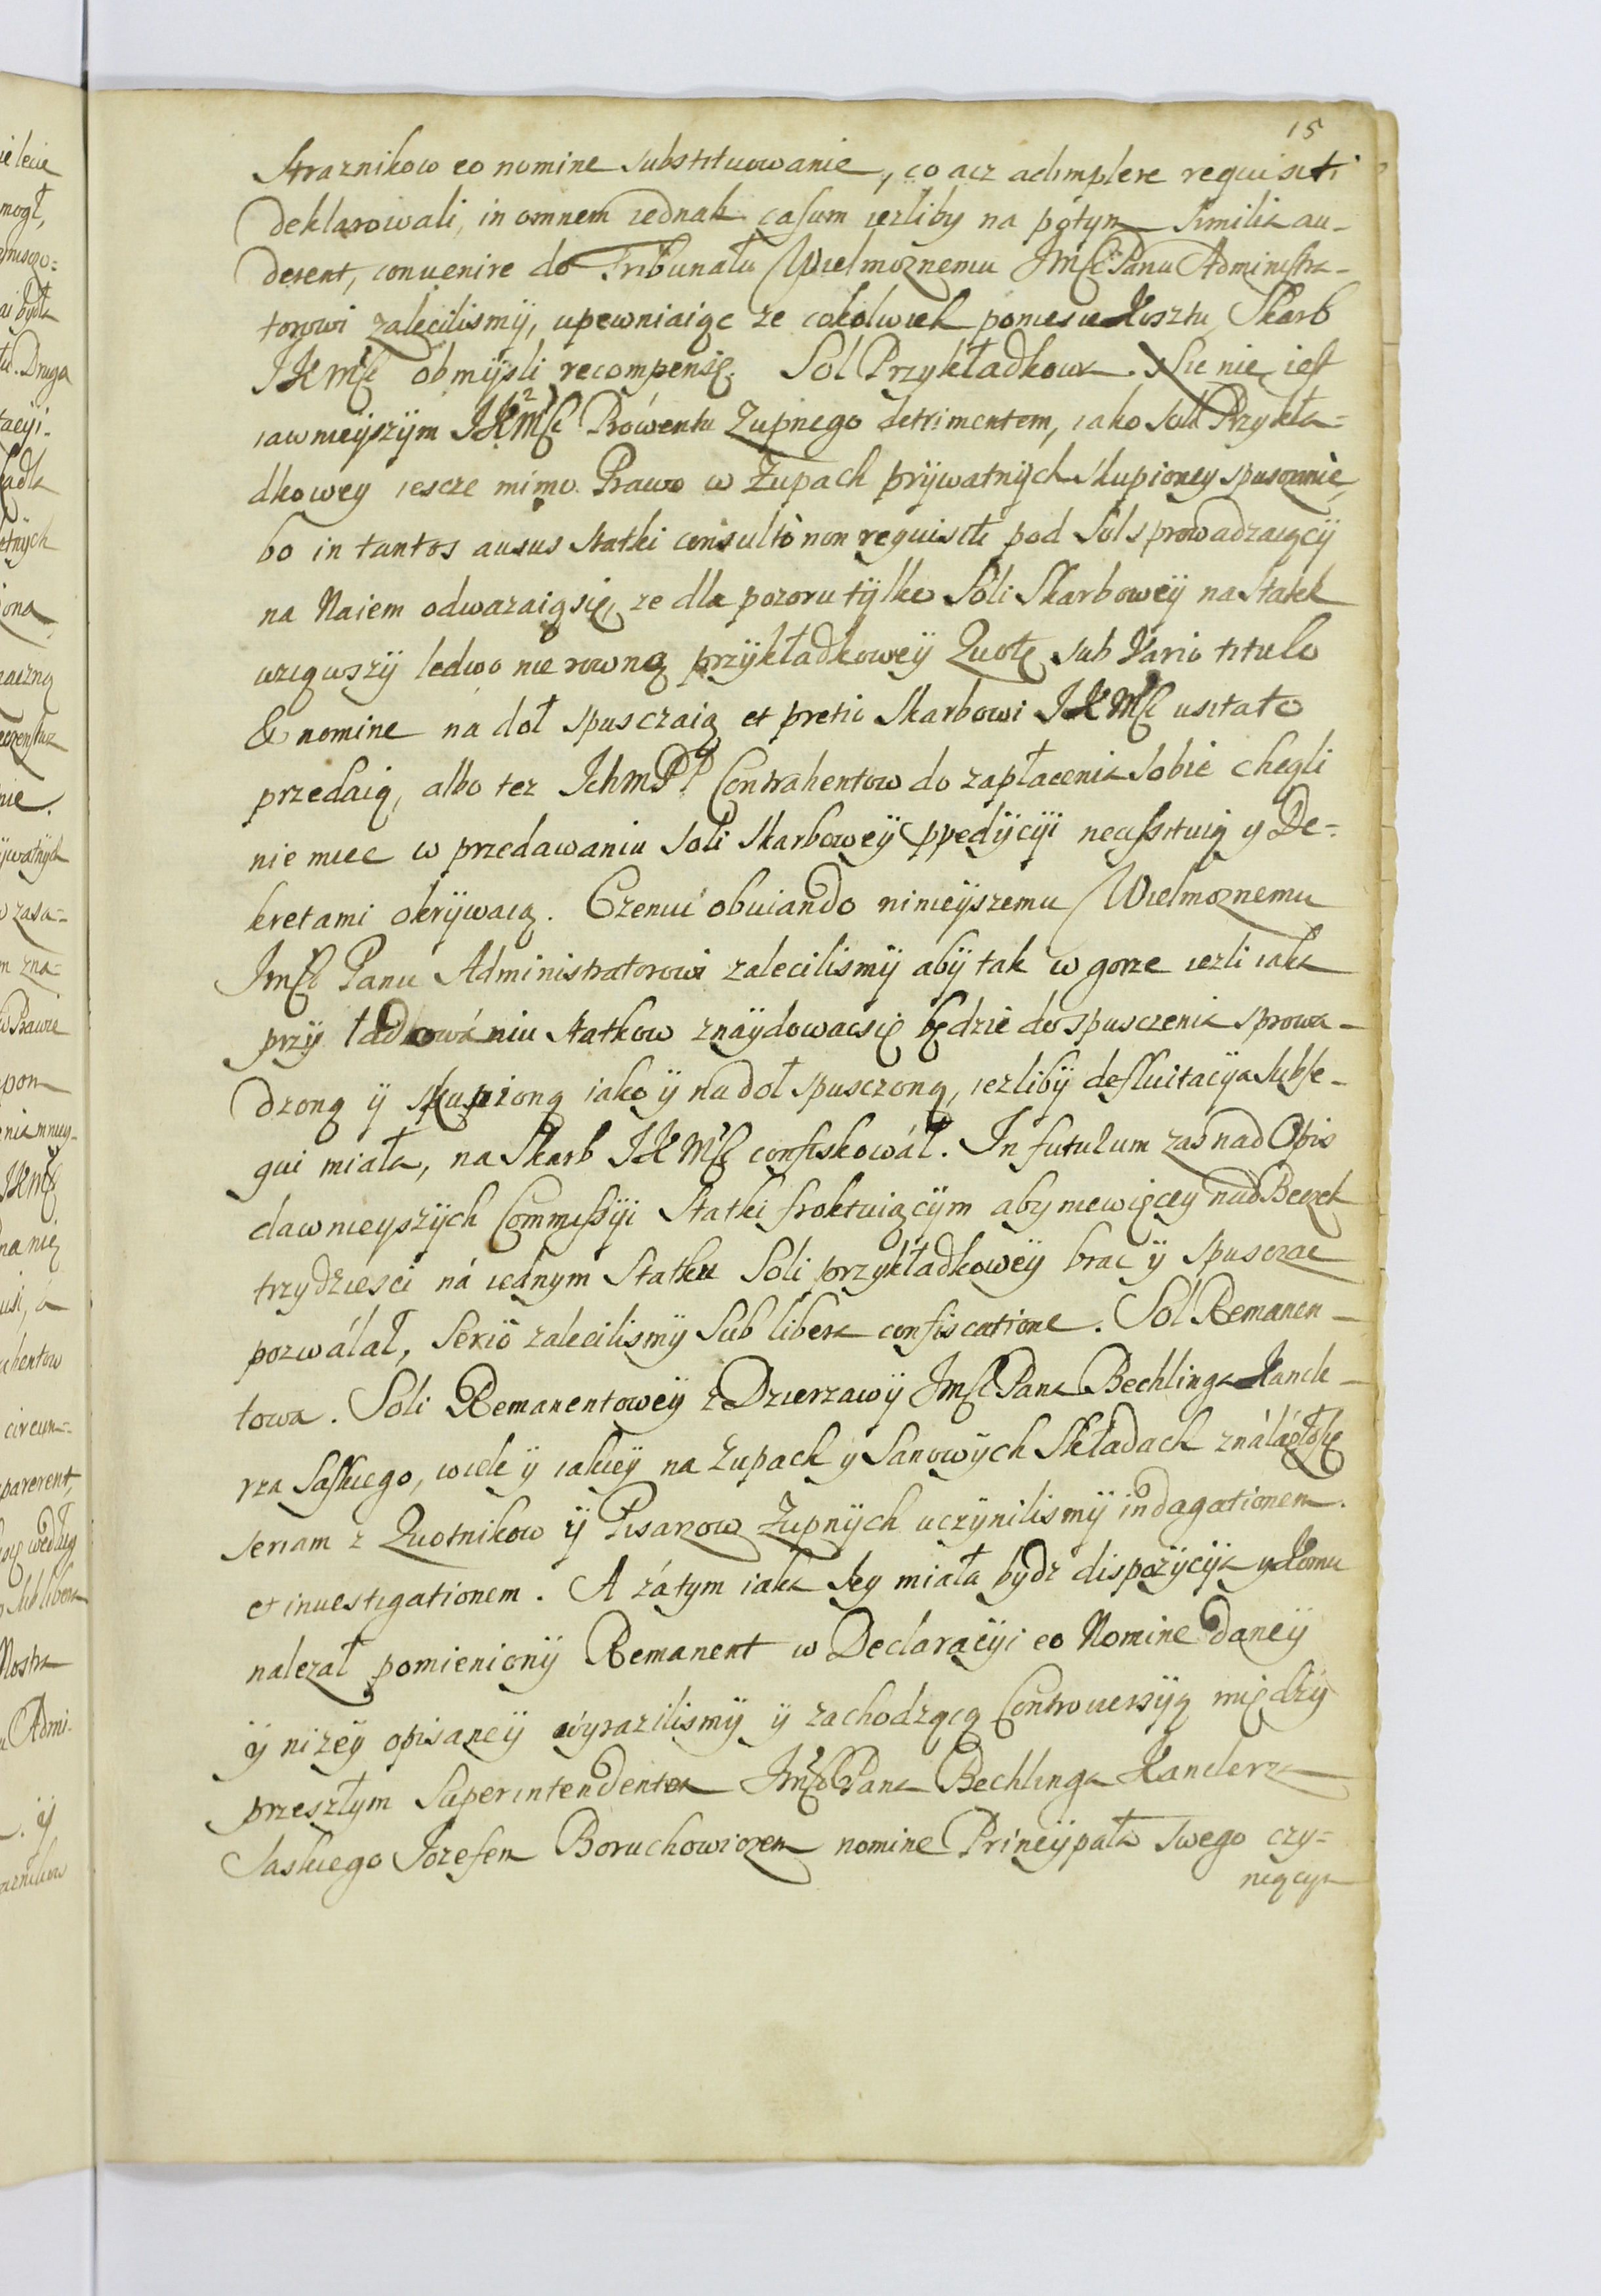 15
Straznikow eo nomine substituowanie, co acz adimplere requisiti
deklarowali, in omnem iednak casum iezliby na potym similia au-
derent, conuenire do Tribunału Wielmoznemu JmSć Panu Administra-
torowi zalecilismÿ, upewniaiąc ze cokolwiek poniesie Kosztu Skarb
JKMSci obmÿsli recompensę. Sol Przykładkowa. Nic nie iest
iawnieÿszÿm JKMSci Prowentu Zupnego detrimentem, iako Soli Przykła=
dkowey iescze mimo Prawo w Zupach prÿwatnÿch Skupioney spusczanie,
bo in tantos ausus Statki consultò non requisiti pod Sol sprowadzaiącÿ
na Naiem odwazaią się, ze dla pozoru tÿlko Soli Skarbowëÿ na Statek
wziąwszÿ ledwo nie rowną przÿkładkowëÿ Quotę sub Vario titulo
& nomine na doł spusczaią et pretio Skarbowi JKMSci usitato
przedaią, albo tez IchmPP Contrahentow do zapłacenia Sobie chęgli
nie miec w przedawaniu Soli Skarbowëÿ ppedÿcÿi necessituią y De=
kretami okrÿwaią. Czemu obuiando ninieÿszemu Wielmoznemu
JmSć Panu Administratorowi zalecilismÿ abÿ tak w gorze iezli iaka
przÿ ładowániu Statkow znaÿdowac się będzie do spusczenia sprowa-
dzoną ÿ skupioną iako ÿ na doł spusczoną, iezlibÿ defluitacÿa subse-
qui miała, na Skarb JKMSci confiskowáł. In futurum zas nad Opis
dawnieyszÿch Commissÿi Statki froktuiącÿm aby niewięcey nad Beczek
trzydziesci ná iednym Statku Soli przykładkowëÿ brac ÿ spusczac
pozwálał, seriò zalecilismÿ sub libera confiscatione. Sol Remanen-
towa. Soli Remanentowëÿ z Dzierzawÿ JmSć Pana Bechlinga Kancle-
rza Saskiego, wiele ÿ iakieÿ na Zupach y Sanowÿch Składach ználázło się
seriam z Quotnikow ÿ Pisarzow Zupnÿch uczÿnilismÿ indagationem
et inuestigationem. A zátym iaka Jey miała bydz dispozÿcÿa y Komu
nalezał pomienionÿ Remanent w Declaracÿi eo Nomine daneÿ
ÿ nizeÿ opisaneÿ wÿrazilismÿ ÿ zachodzącą Controuersÿą międzÿ
przeszłym Superintendentem JmSć Pana Bechlinga Kanclerza
Saskiego Jozefem Boruchowiczem nomine Princÿpała swego czy=
niącym